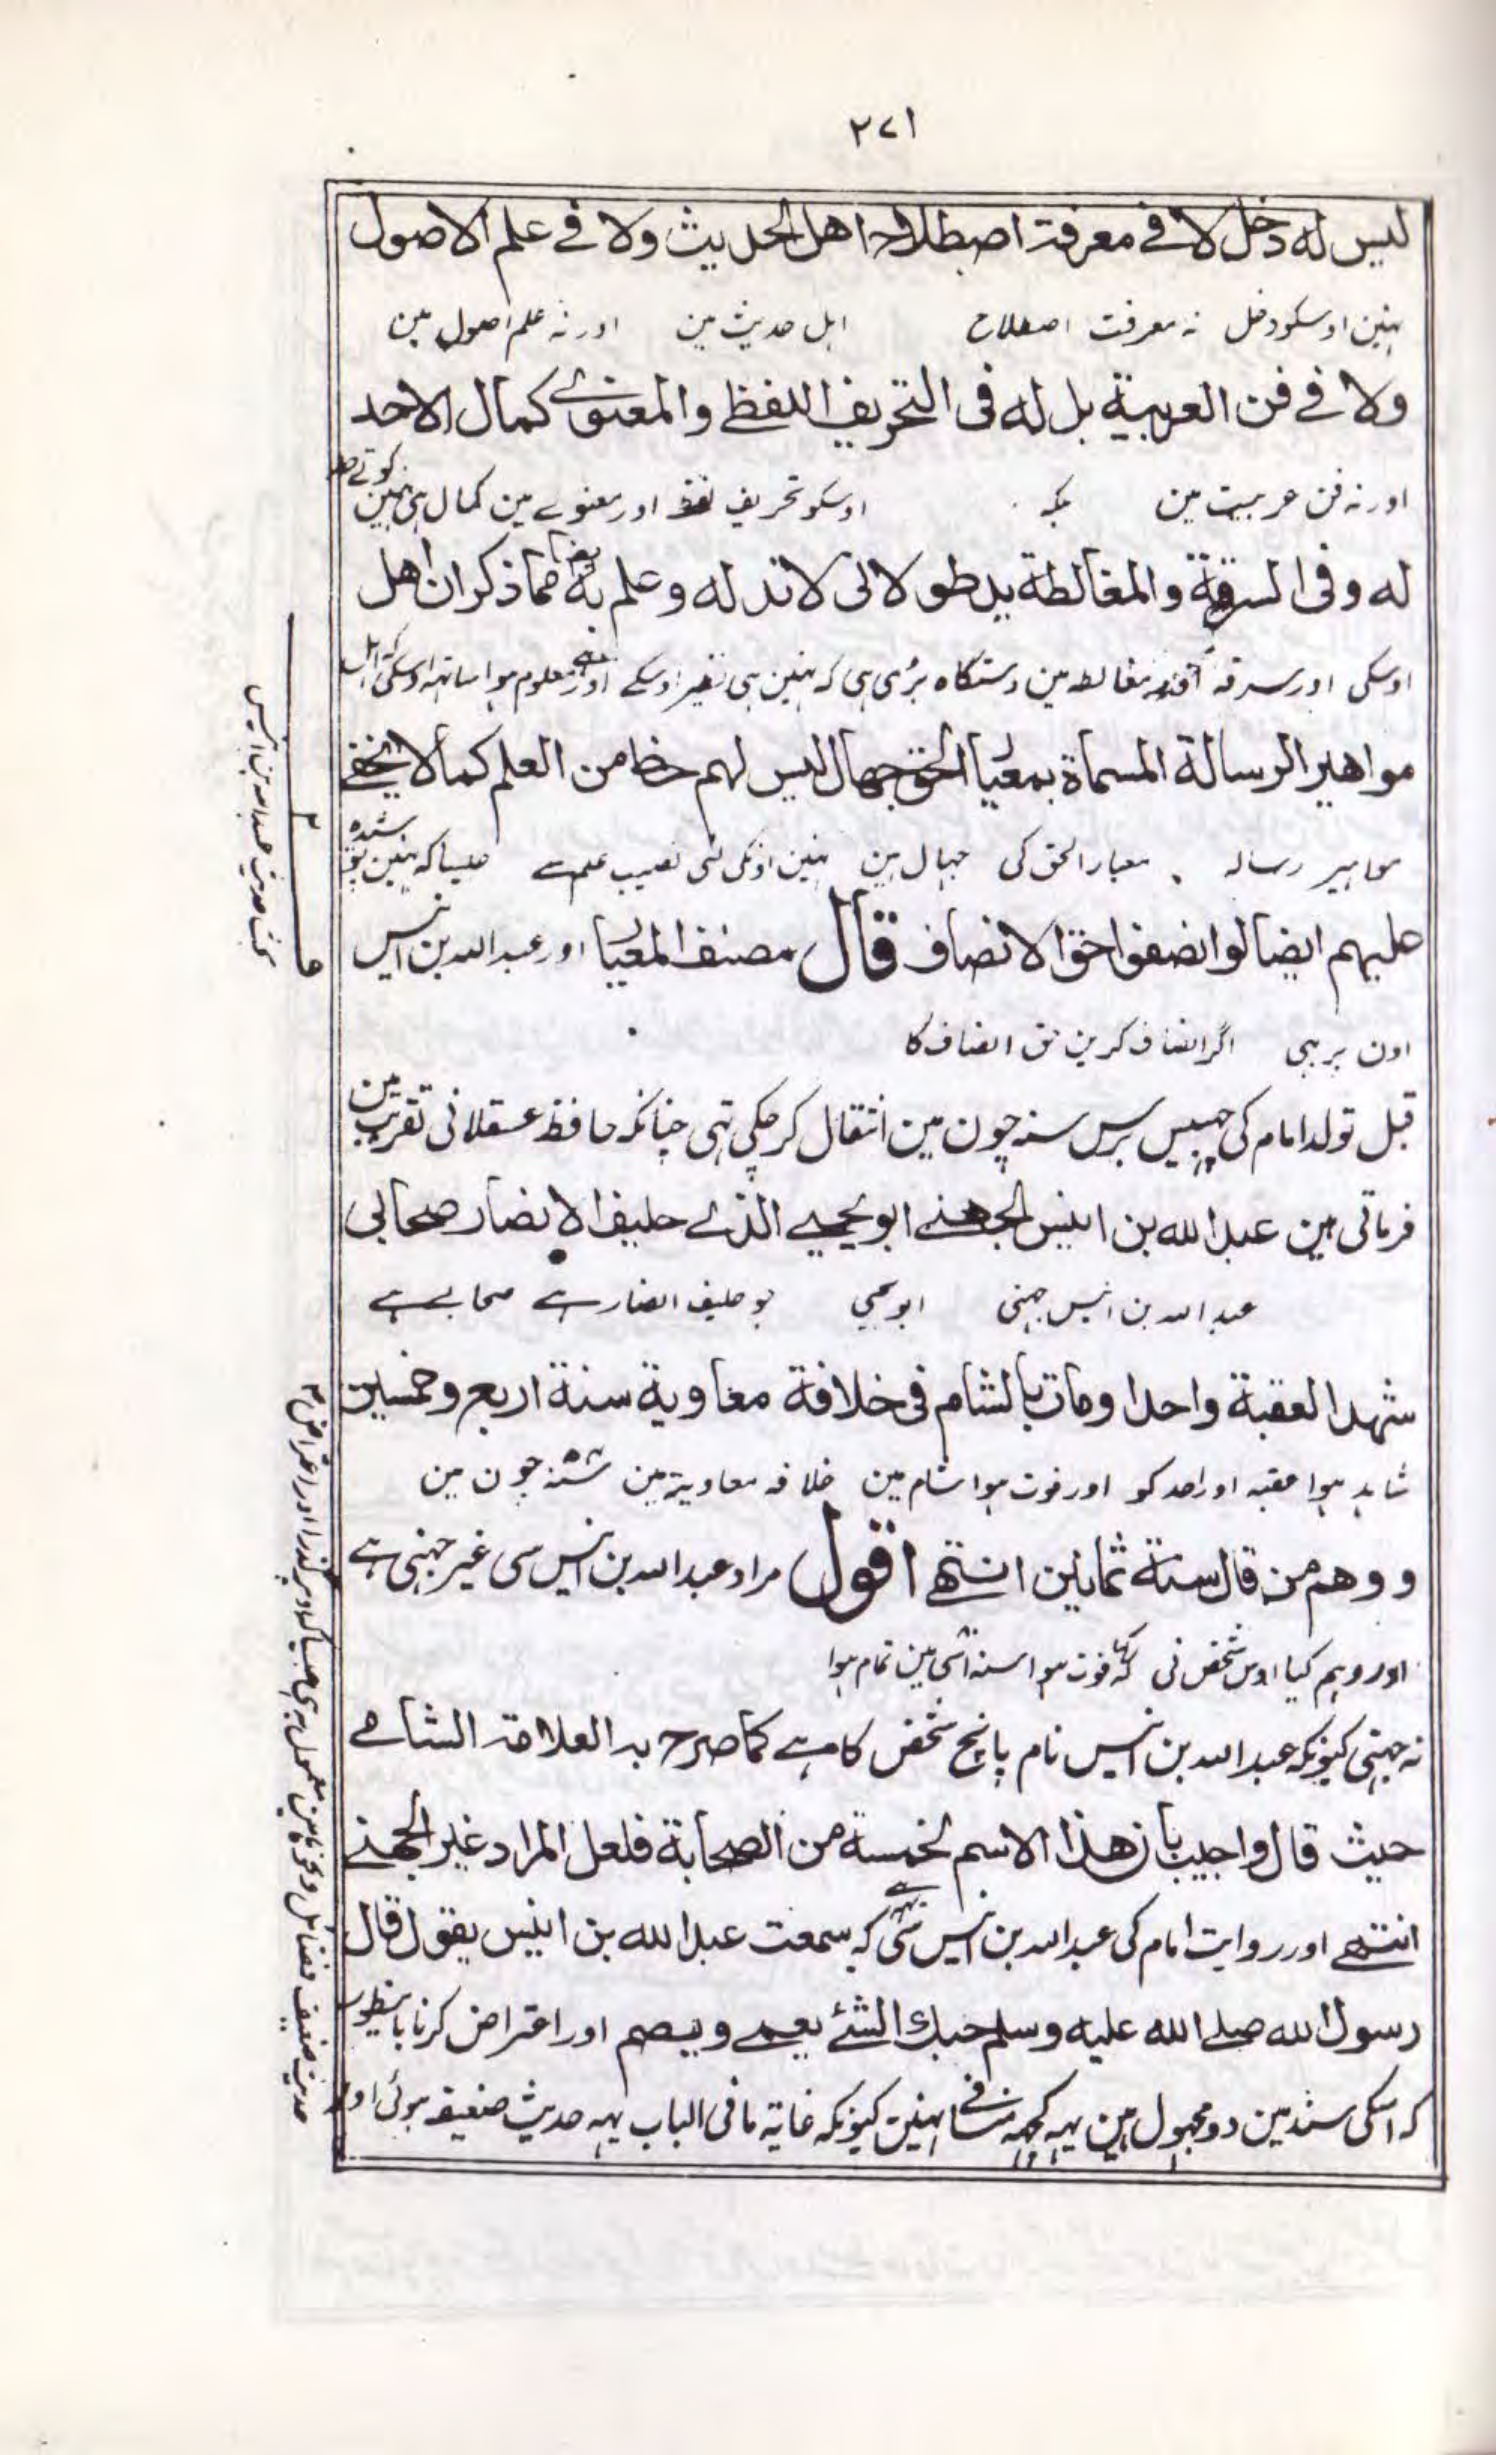 ۲۷۱
ليس له دخل لا فى معرفة اصطلاح اهل الحديث ولا فى علم الاصول
نہین اوسکو دخل نہ معرفت اصطلاح اہل حدیث مین اور نہ علم اصول مین
ولا فى فن العربية بل له فى التحريف اللفظى والمعنوى كمال لا احد
اور نہ فن عربیت مین بلکہ اوسکو تحریف لفظ اور معنوے مین کمال ہی نہین
له وفى السرقة والمغالطة يد طولا لا ند له وعلم به ايضا مما ذكر ان اهل
اوسکی اور سرقہ اور مغالطہ مین دستگاہ بڑی ہی کہ نہین ہی نظیر اوسکے اور معلوم ہوا ساتہہ اوسکی کہ اہل
مواهير الرسالة المسماة بمعيار الحق جهال ليس لهم حظ من العلم كما لا يخفى
مواہیر رسالہ معیار الحق کی جہال ہین نہین اونکی لئی نصیب علم سے جیسا کہ نہین پوشیدہ
عليهم ايضا لو انصفوا حق الانصاف قال مصنف المعيار اور عبد اللہ بن انیس
اون پر بہی اگر انصاف کرین حق انصاف کا
قبل تولد امام کی چہبیس برس سنہ چون مین انتقال کر چکی تہی چنانکہ حافظ عسقلانی تقریب مین
فرماتی ہین عبد الله بن انيس الجهنى ابو يحيى الذى حليف الانصار صحابى
عبد اللہ بن انیس جہنی ابو یحیی جو حلیف انصار ہے صحابے ہے
شهد العقبة واحدا ومات بالشام فى خلافة معاوية سنة اربع وخمسين
شاہد ہوا عقبہ اور احد کو اور فوت ہوا شام مین خلافہ معاویہ مین سنہ چون مین
ووهم من قال سنة ثمانين انتهى اقول مراد عبد اللہ بن انیس سی غیر جہنی ہے
اور وہم کیا اوس شخص نی کہ کہا فوت ہوا سنہ اسّی مین تمام ہوا
نہ جہنی کیونکہ عبد اللہ بن انیس نام پانچ شخص کا ہے كما صرح به العلامة الشامى
حيث قال واجيب بان هذا الاسم لخمسة من الصحابة فلعل المراد غير الجهنى
انتهى اور روایت امام کی عبد اللہ بن انیس سی یہہ ہے کہ سمعت عبد الله بن انيس يقول قال
رسول الله صلى الله عليه وسلم حبك الشئ يعمى ويصم اور اعتراض کرنا باینطور
کہ اسکی سند مین دو مجہول ہین یہہ کچہہ منافے نہین کیونکہ غایۃ ما فی الباب یہہ حدیث ضعیف ہوئی اور
بحث حدیث عبد اللہ بن انیس
حدیث ضعیف فضائل وغیرہ مین معمول بہ ہی